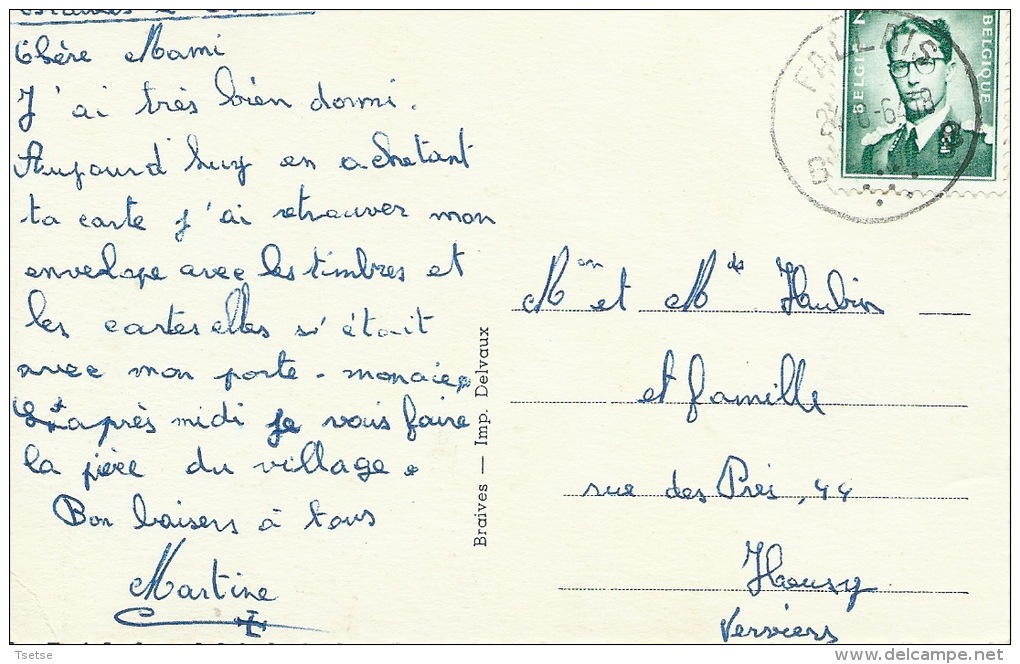 Chère Mami
J'ai très bien dormi.
Aujourd huy en achetant
ta carte j'ai retrouver mon
envelope avec les timbres et
les cartes elles s'était
avec mon porte-monaie
après midi je vais faire
la pièce du village.
Bon baisers à tous
Martine
Braives — Imp. Delvaux
FALLAIS
BELGIE
BELGIQUE
Mon et Mds Haubin
et famille
rue des Près, 44
Heusy
Verviers
Tsetse
delcampe.net